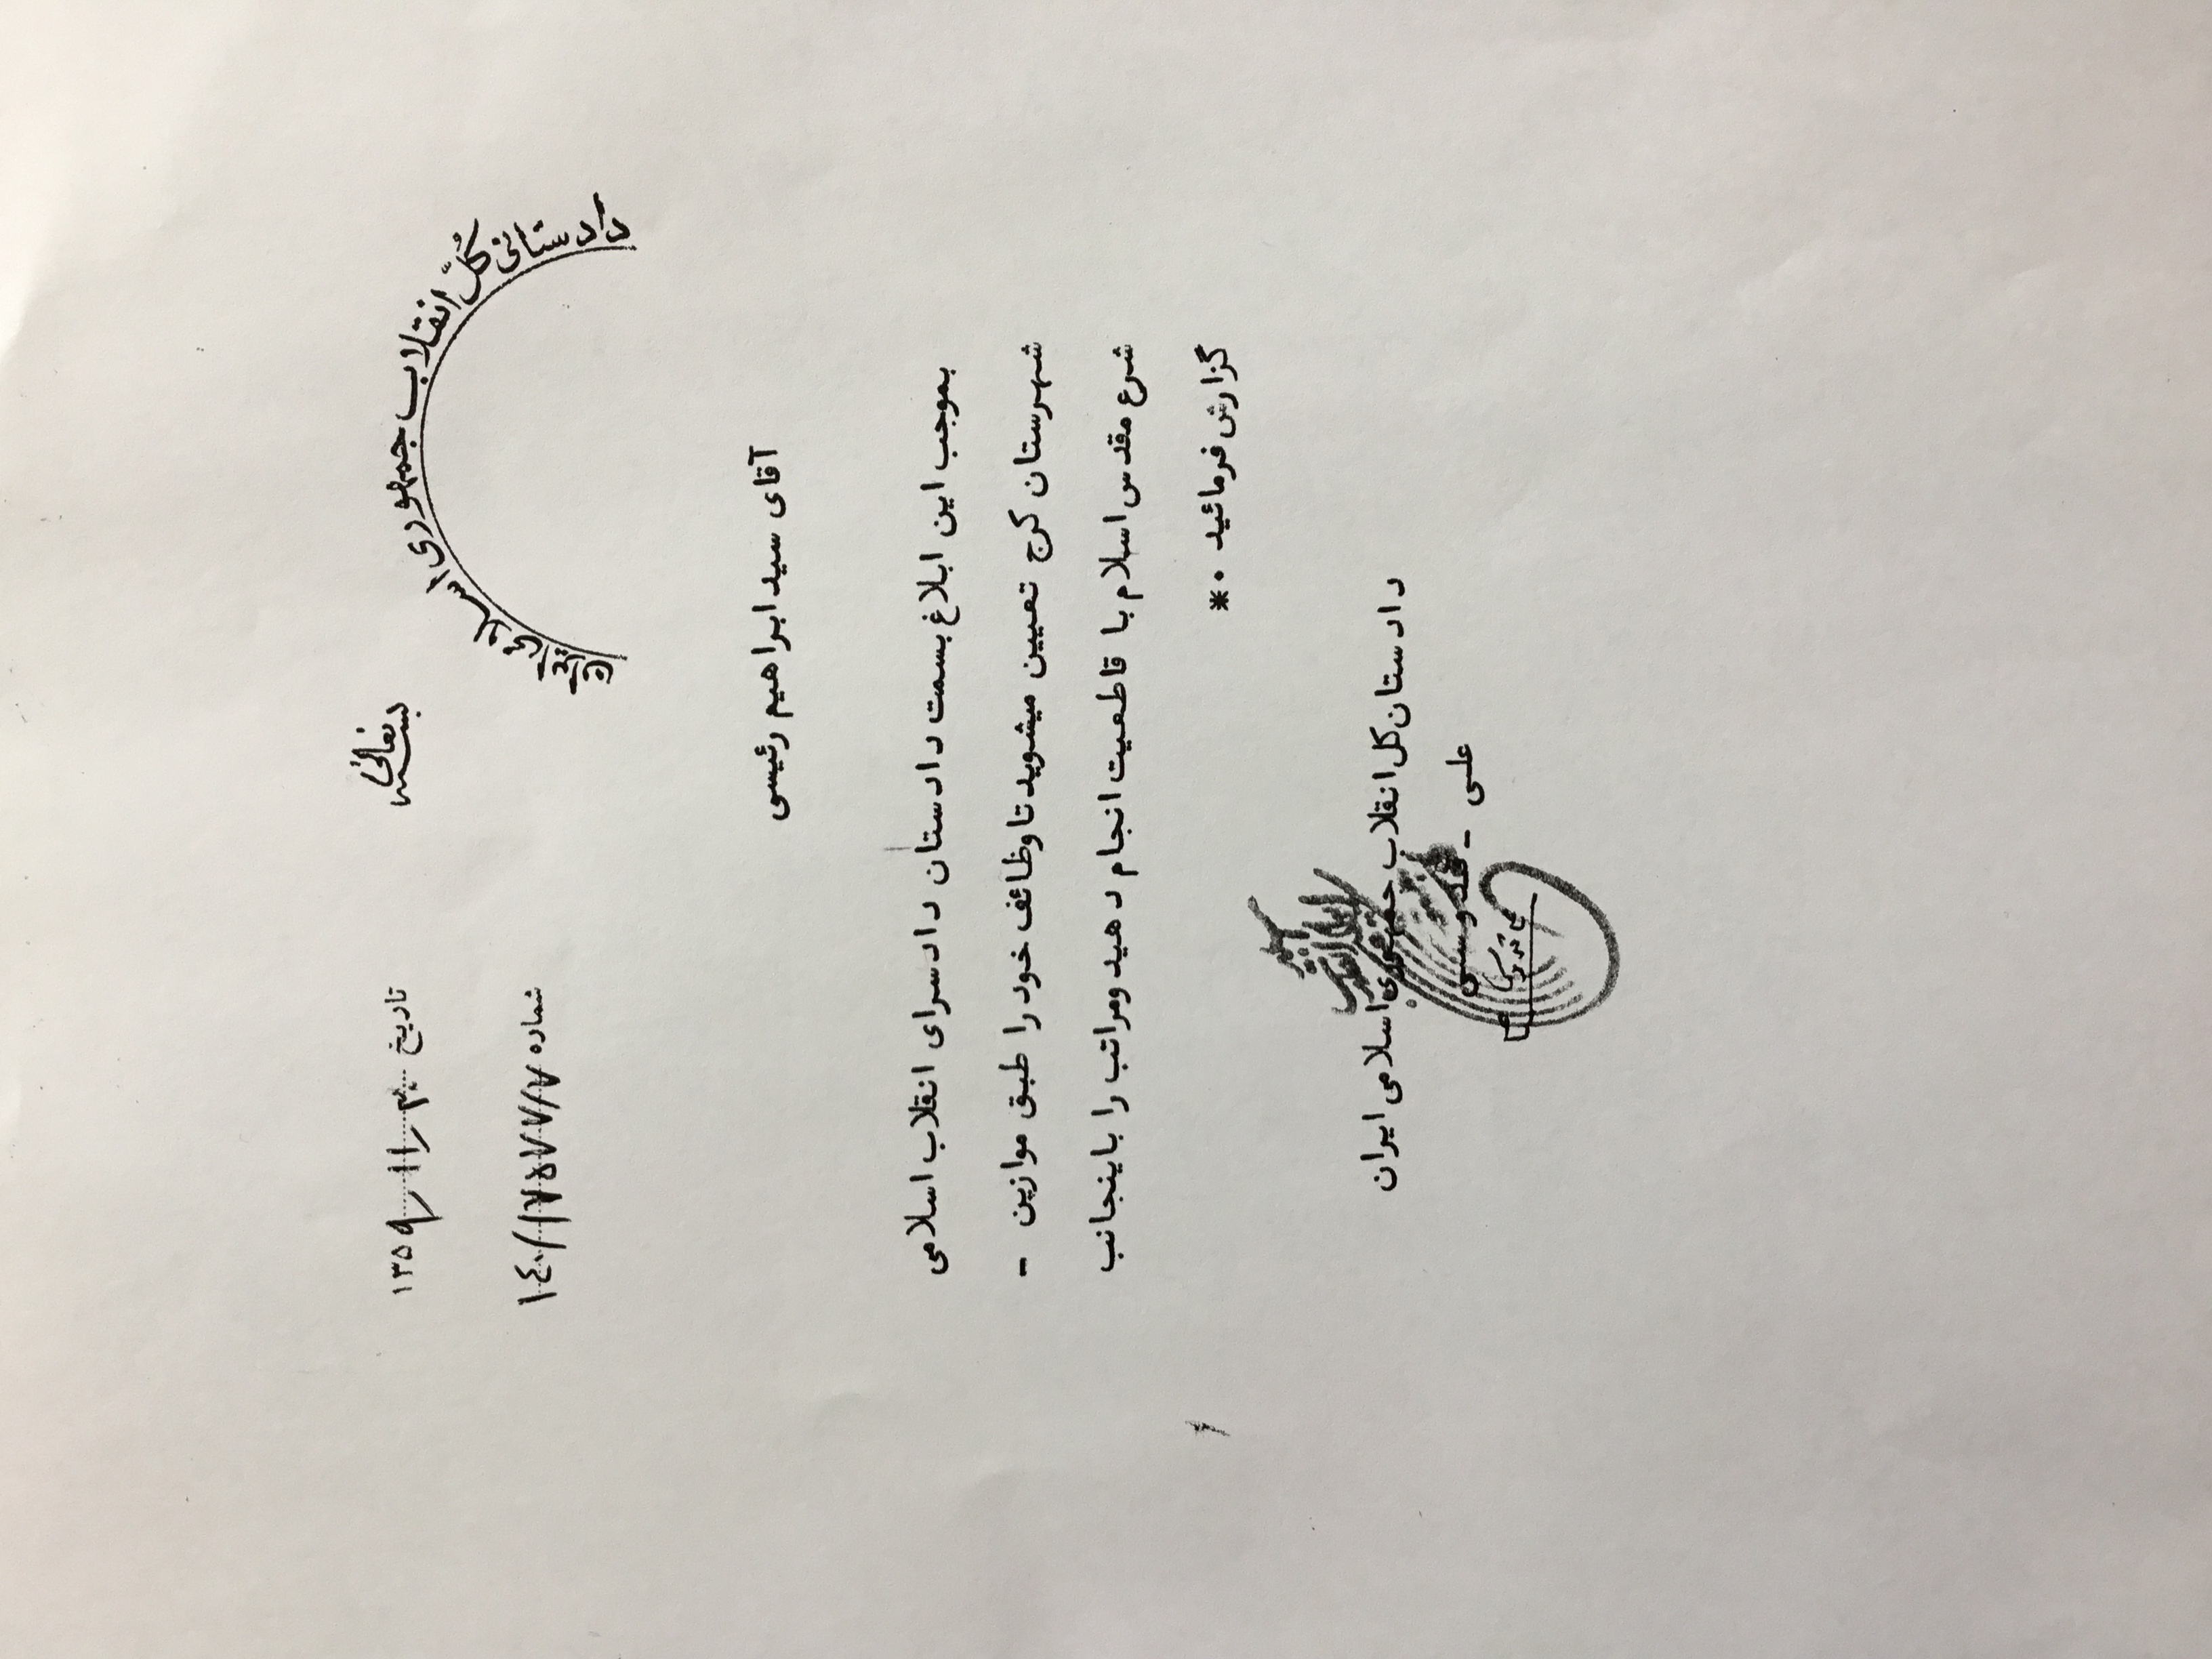 بسمه تعالی
دادستانی کل انقلاب جمهوری اسلامی ایران
تاریخ ۱۳۵۹/۱۱/
شماره
آقای سید ابراهیم رئیسی
بموجب این ابلاغ بسمت دادستان دادسرای انقلاب اسلامی
شهرستان کرج تعیین میشوید تا وظائف خود را طبق موازین -
شرع مقدس اسلام با قاطعیت انجام دهید ومراتب را باینجانب
گزارش فرمائید . *
دادستان کل انقلاب جمهوری اسلامی ایران
علی - قدوسی